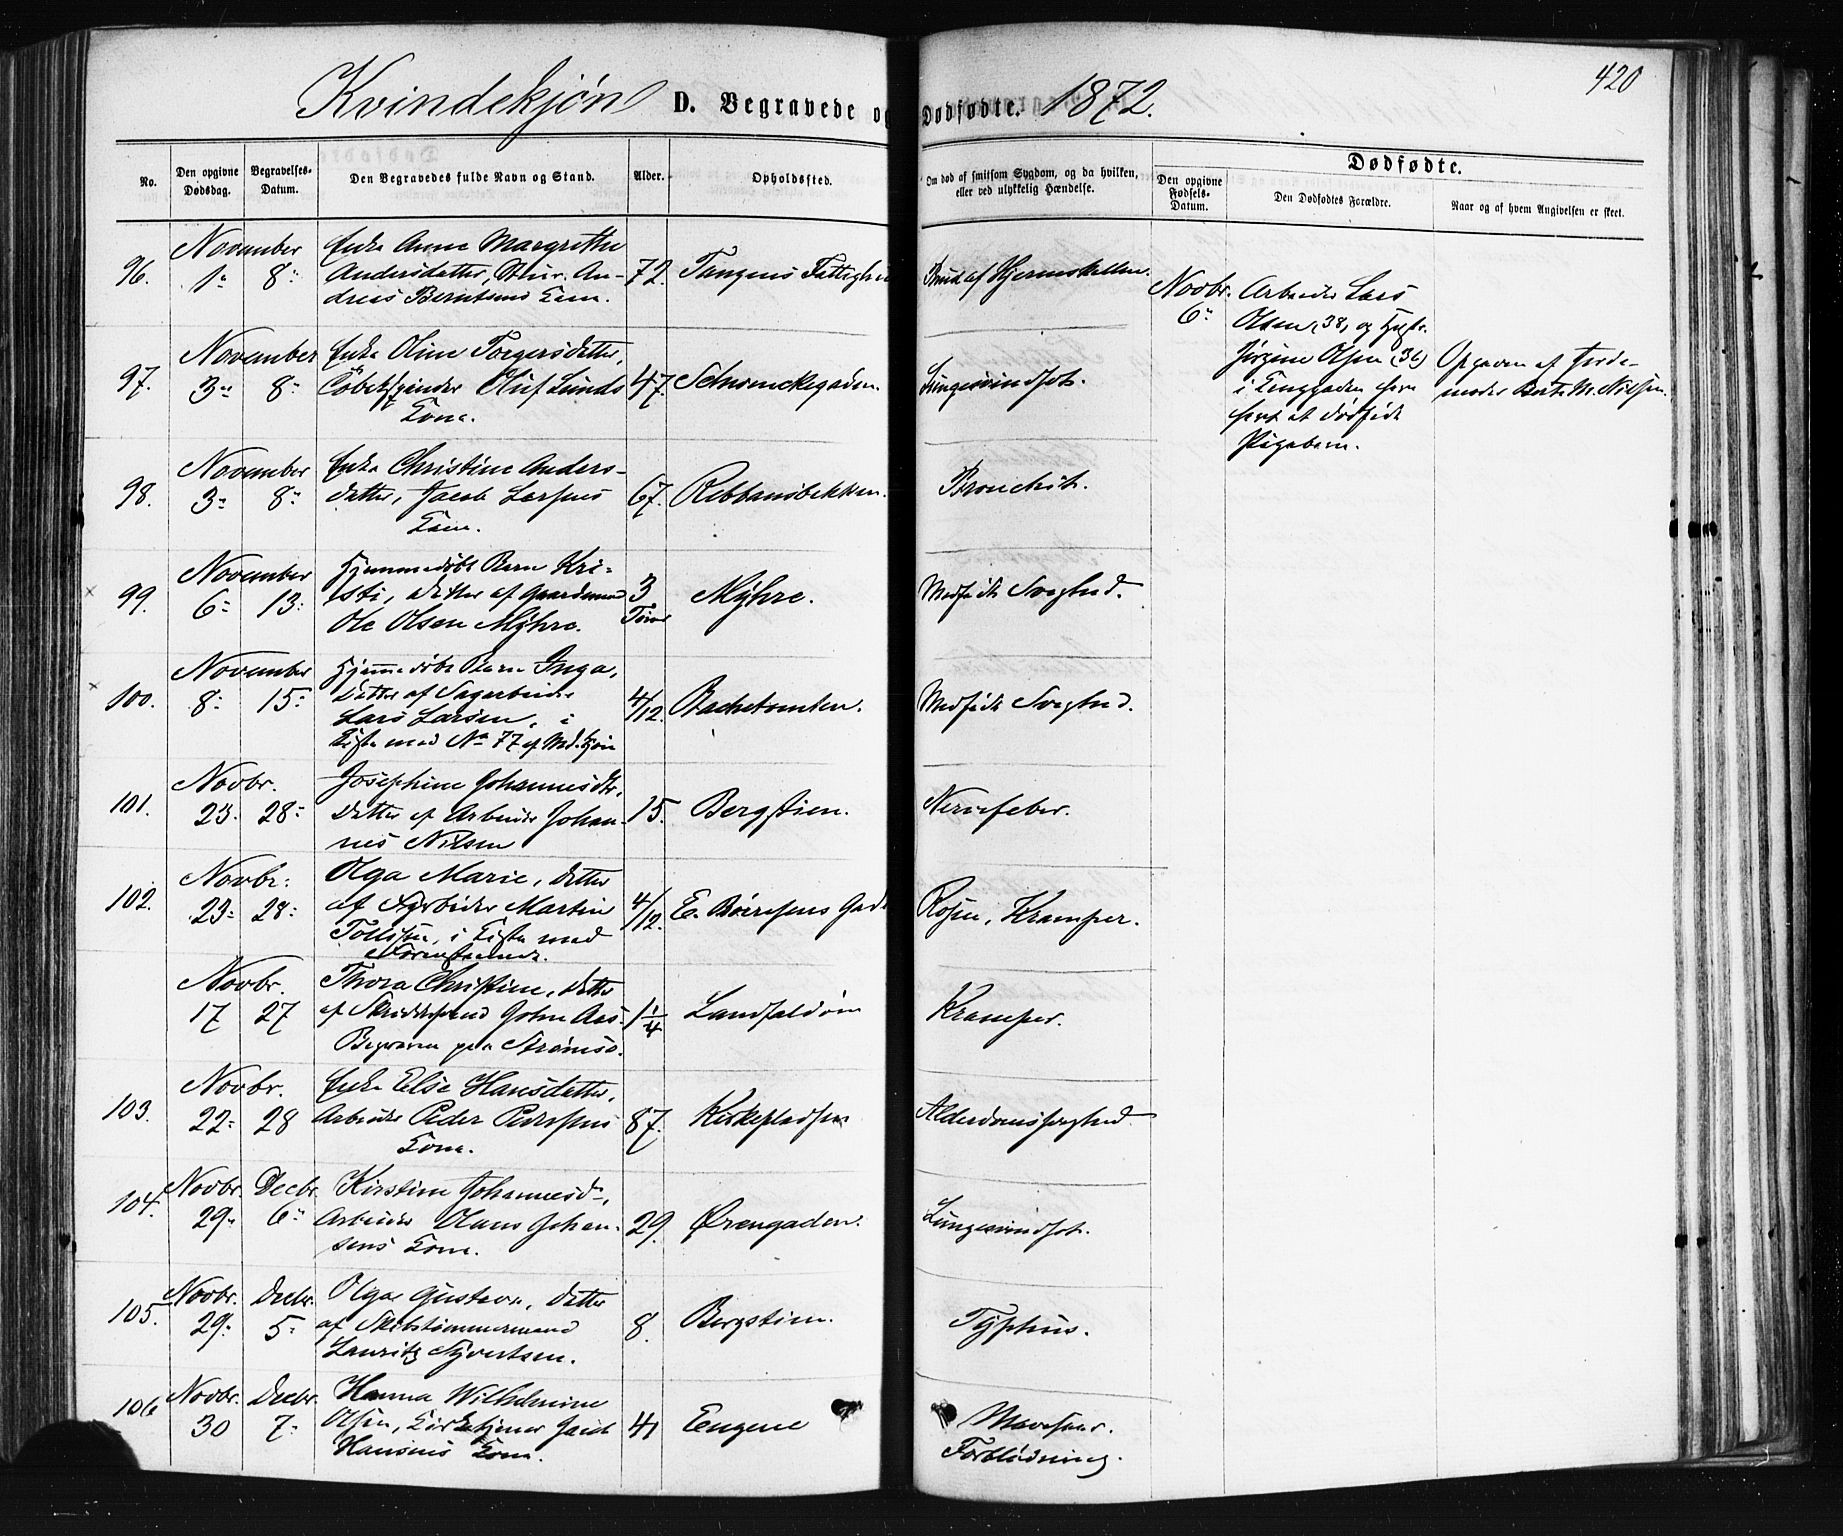 420
Kvindekjøn D. Begravede og Dødfødte. 1872.
No.
Den opgivne Dødsdag.
Begravelses-Datum.
Den Begravedes fulde Navn og Stand.
Alder.
Opholdssted.
Om død af smitsom Sygdom, og da hvilken,
eller ved ulykkelig Hændelse.
Dødfødte.
Den opgivne Fødsels-Datum.
Den Dødfødtes Forældre.
Naar og af hvem Angivelsen er skeet.
November Enke Anne Margrethe
96. 1 8 Andersdatter, An- 72. Tangens Fattighu af Hjerneskallen.
dreas Berntsens Kone.
November Enke Oline Torgersdatter,
97. 3 8 Oluf Lunds 47. Schwenckegaden. Lungesvindsot.
Kone.
November Enke Christine Anders-
98. 3 8 datter, Jacob Larsens 67. Rebbansbakken. Bronchit.
Kone.
November Hjemmedøbt Barn Kri-
99. 6 13 sti, Datter af Gaardmand 3 Myhre. Medfødt Svaghed.
Ole Olsen Myhre. Timer
November Hjemmedøbt Barn Inga,
100. 8 15 Datter af Sagarbeider 4/12. Bachetomten. Medfødt Svaghed.
Lars Larsen, i
Kiste med No 77 af Md.kjøn
Novbr. Josephine Johannesdtr,
101. 23 28 Datter af Arbeider Johan- 15. Bergstien. Nervefeber.
nes Nilsen
Novbr. Olga Marie, Datter
102. 23 28 af Arbeider Martin 4/12. E. Børresens Gade Rosen, Kramper.
Tollefsen, i Kiste med
Forenstaaende.
Novbr. Thora Christine, Datter
17 27 af John Aas. 1 1/4 Landfaldøen Kramper.
Begraven paa Strømsø.
Novbr. Enke Else Hansdatter,
103. 22 28 Arbeider Peder Pedersens 87. Kirkepladsen Alderdomssvaghed
Kone.
Novbr. Decbr. Kirstine Johannesd.,
104. 29 6 Arbeider Hans Johan- 29. Ørengaden. Lungesvindsot.
sens Kone.
Novbr. Decbr. Olga Gustava, Datter
105. 29 5 af Skibstømmermand 8 Bergstien. Typhus.
Lauritz Syvertsen.
Novbr. Decbr. Hanna Wilhelmine
106 30 7 Olsen, Kirketjener 41 Engene Mavesaar.
Hansens Kone. Forblødning.
Novbr. Arbeider Lars
6 Olsen (38) og Hustr.
Jørgine Olsen (36)
i Enggaden have
havt et dødfødt
Pigebarn.
Opgaven af Jorde-
moder Berte M. Nilsen.